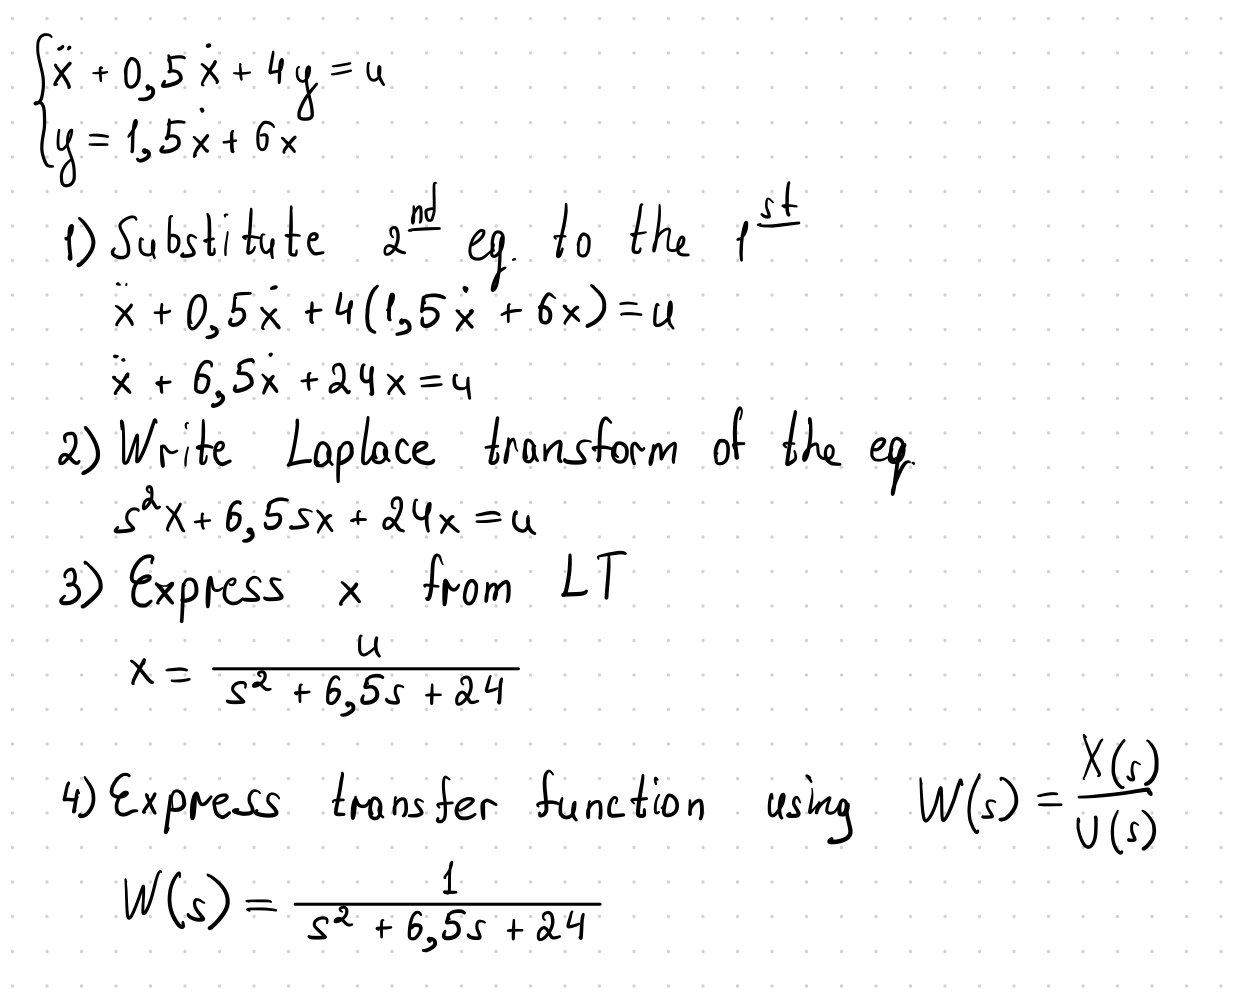 ẍ + 0,5 ẋ + 4y = u
y = 1,5ẋ + 6x
1) Substitute 2nd eq. to the 1st
ẍ + 0,5ẋ + 4(1,5ẋ + 6x) = u
ẍ + 6,5ẋ + 24x = u
2) Write Laplace transform of the eq.
s²x + 6,5sx + 24x = u
3) Express x from LT
x = u / (s² + 6,5s + 24)
4) Express transfer function using W(s) = X(s) / U(s)
W(s) = 1 / (s² + 6,5s + 24)